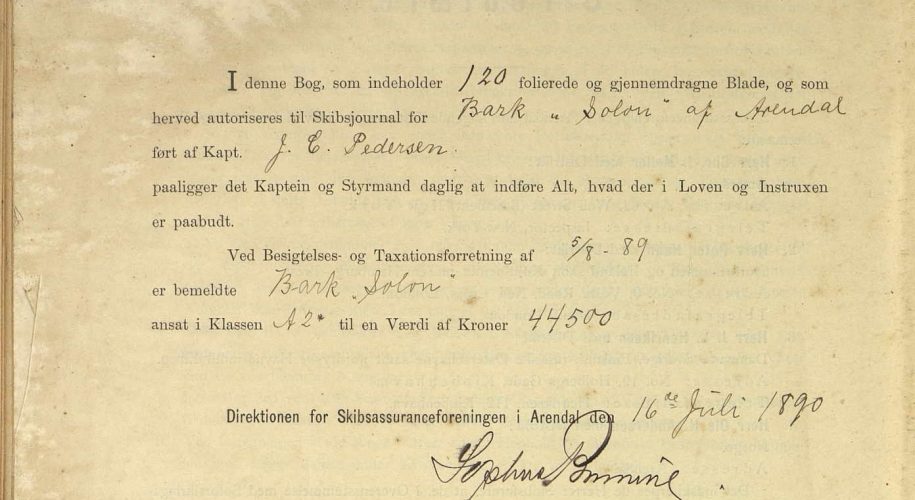 I denne Bog, som indeholder 120 folierede og gjennemdragne Blade, og som
herved autoriseres til Skibsjournal for Bark „Solon" af Arendal
ført af Kapt. J. E. Pedersen.
paaligger det Kaptein og Styrmand daglig at indføre Alt, hvad der i Loven og Instruxen
er paabudt.
Ved Besigtelses- og Taxationsforretning af 5/8 - 89
er bemeldte Bark Solon"
ansat i Klassen A2* til en Værdi af Kroner 44500
Direktionen for Skibsassuranceforeningen i Arendal den 16de Juli 1890
Sophus